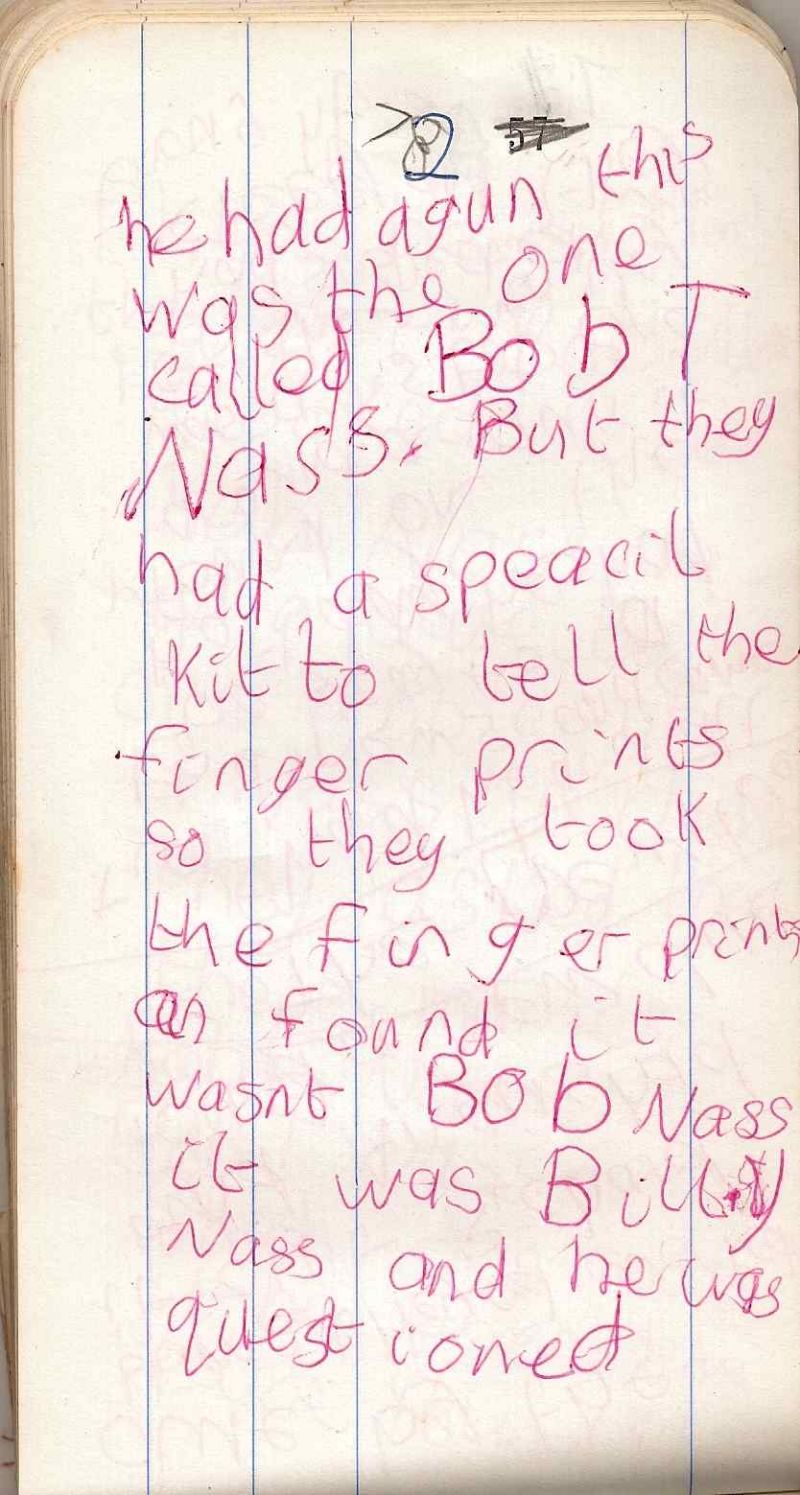 78 57
he had a gun this
was the one
called Bob T
Nass. But they
had a speacil
kit to tell the
finger prints
so they took
the finger prints
an found it
wasnt Bob Nass
it was Billy
Nass and he was
questioned